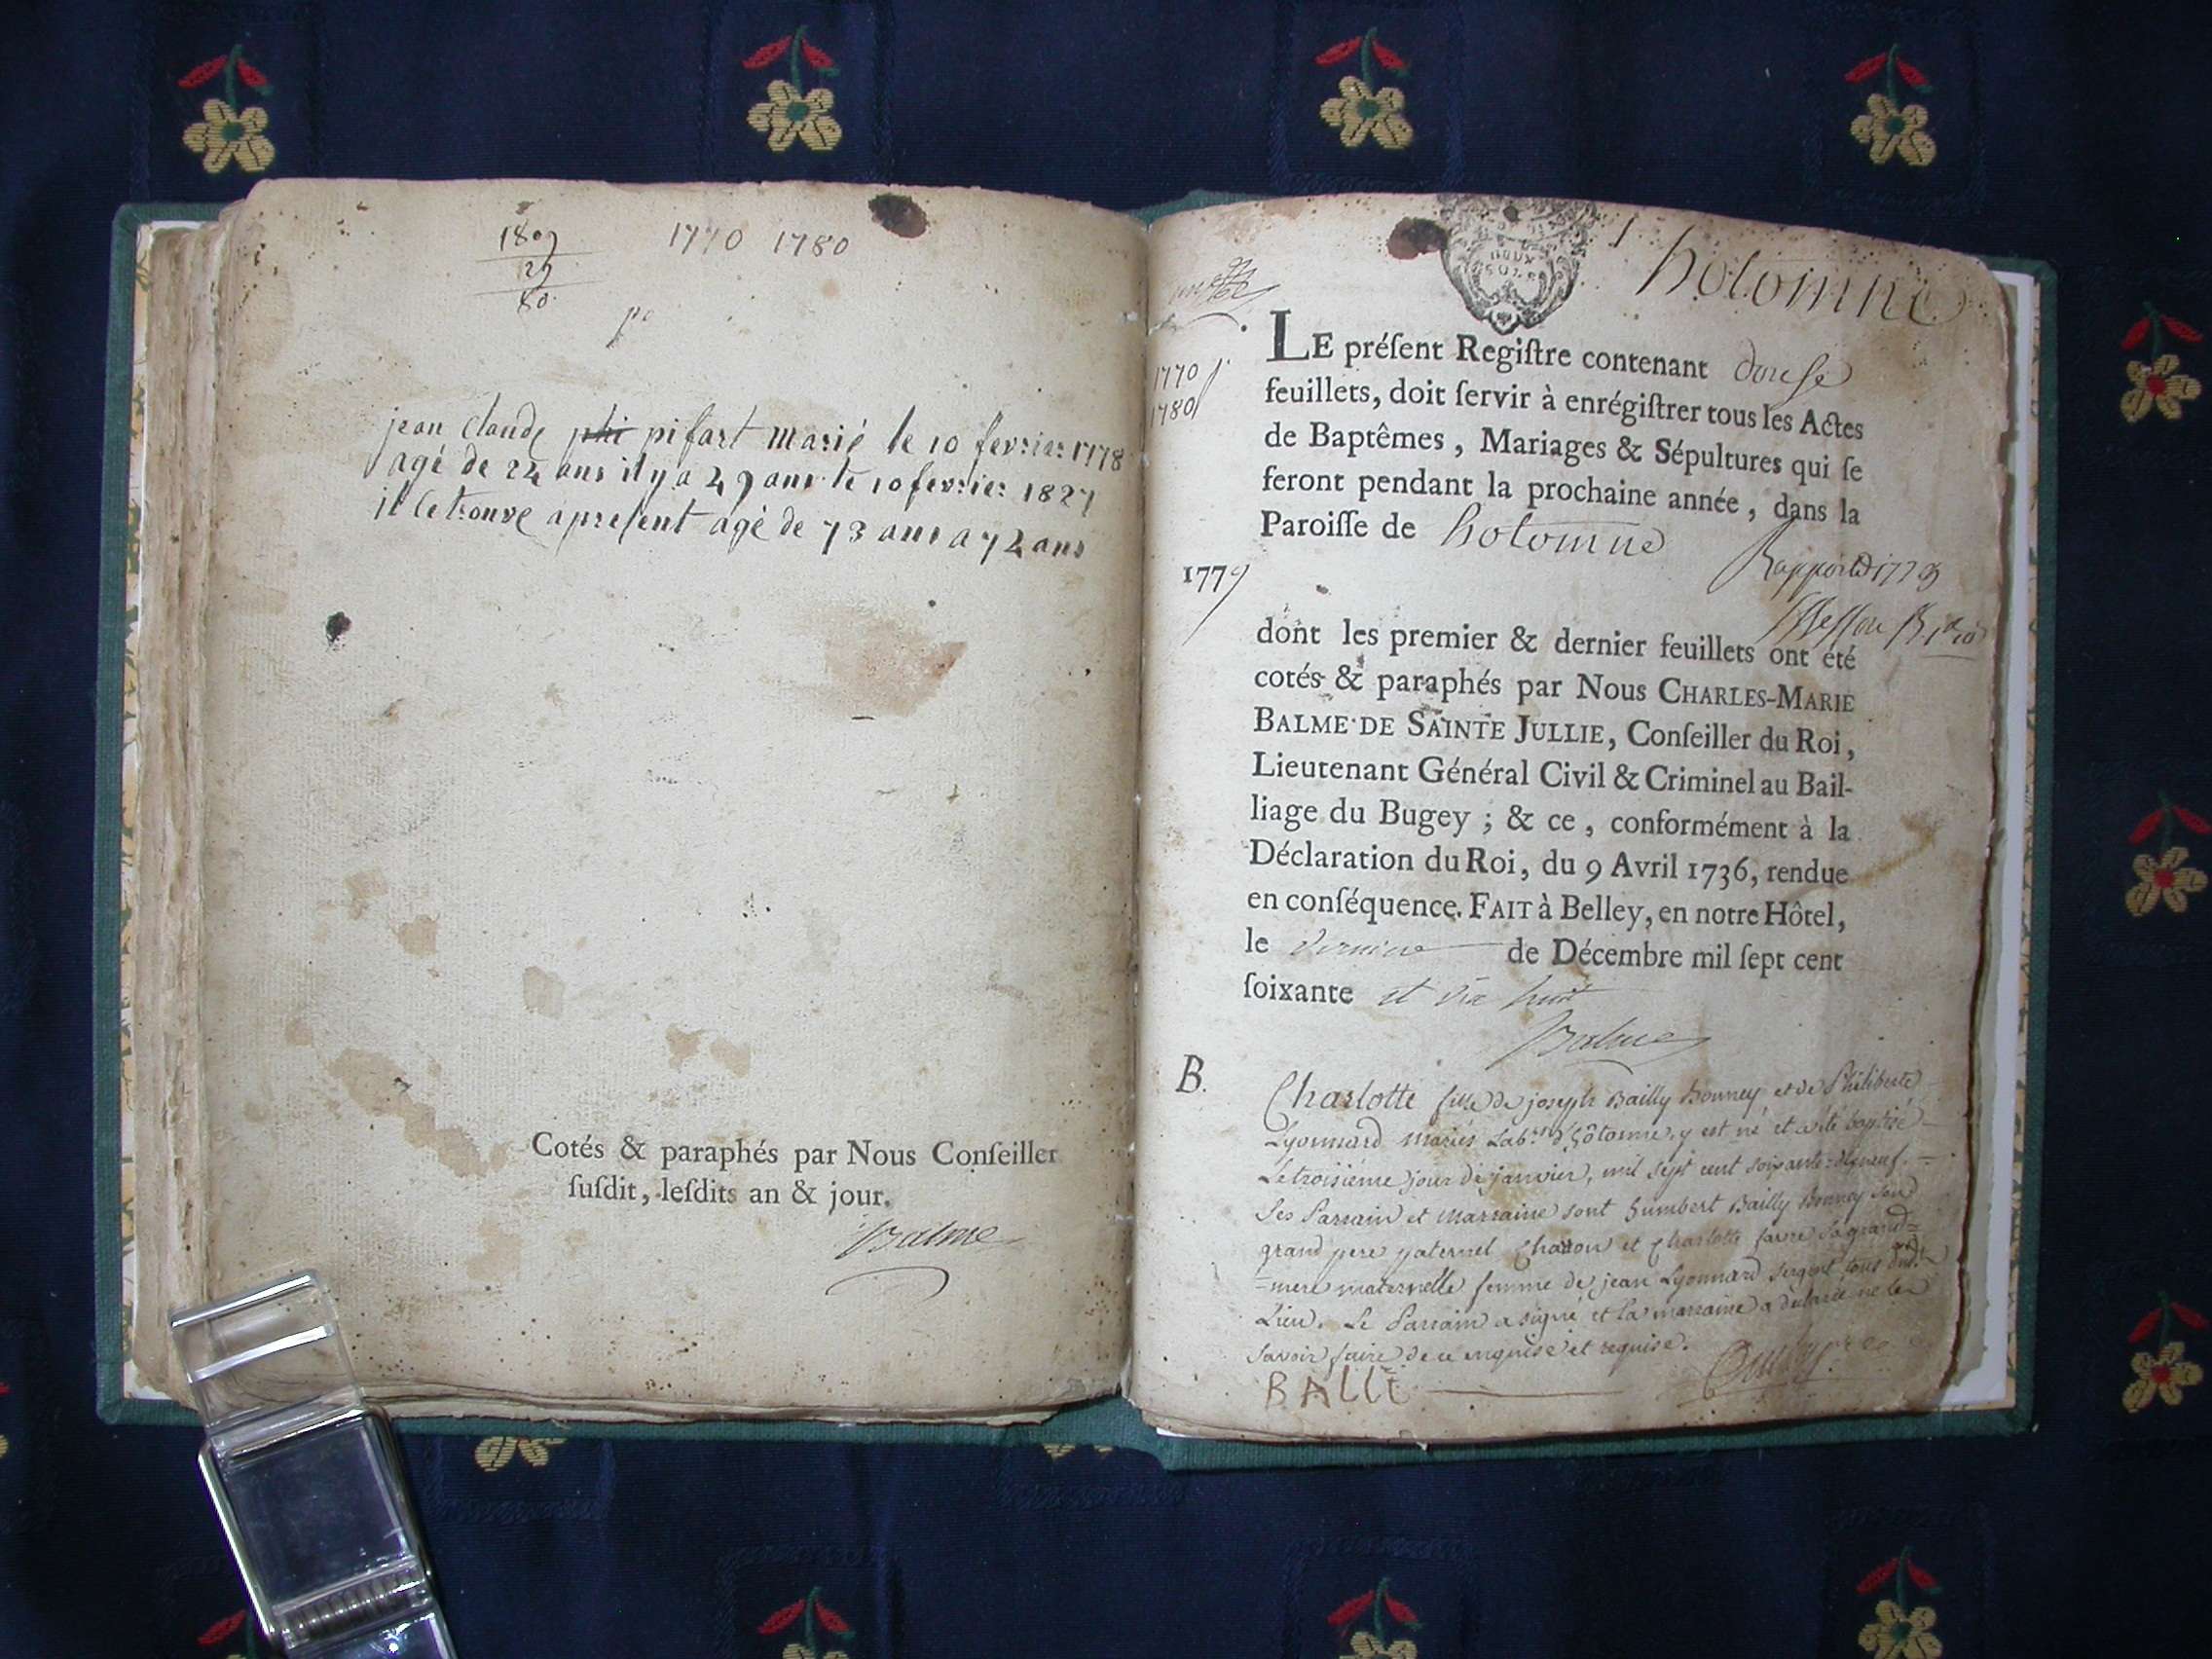 1807
27
80
1770 1780
po
jean claude phi pifart marié le 10 fevrier 1778
agé de 24 ans il y a 49 ans le 10 fevrier 1827
il se trouve apresent agé de 73 ans a 72 ans
Cotés & paraphés par Nous Conſeiller
ſuſdit, leſdits an & jour.
Balme
1
DEUX
SOLS
hotonne
1770
1780
LE préſent Regiſtre contenant douſe
feuillets, doit ſervir à enrégiſtrer tous les Actes
de Baptêmes, Mariages & Sépultures qui ſe
feront pendant la prochaine année, dans la
Paroiſſe de hotonne
1779
dont les premier & dernier feuillets ont été
cotés & paraphés par Nous CHARLES-MARIE
BALME DE SAINTE JULLIE, Conſeiller du Roi,
Lieutenant Général Civil & Criminel au Bail-
liage du Bugey ; & ce, conformément à la
Déclaration du Roi, du 9 Avril 1736, rendue
en conſéquence. FAIT à Belley, en notre Hôtel,
le dernier de Décembre mil ſept cent
ſoixante et dix huit
Balme
B.
Charlotte fille de joseph Bailly Bonney et de Philiberte
Lyonnard mariés Labrs d'hôtonne, y est né et a été baptisé
Le troisième jour de janvier, mil sept cent soixante-dix neuf.
Ses Parrain et marraine sont humbert Bailly Bonney son
grand pere paternel et Charlotte favre sa grand=
=mere maternelle femme de jean Lyonnard sergent tous dud.
Lieu. Le Parrain a signé et la marraine a declaré ne le
savoir faire de ce enquise et requise.
BALLI